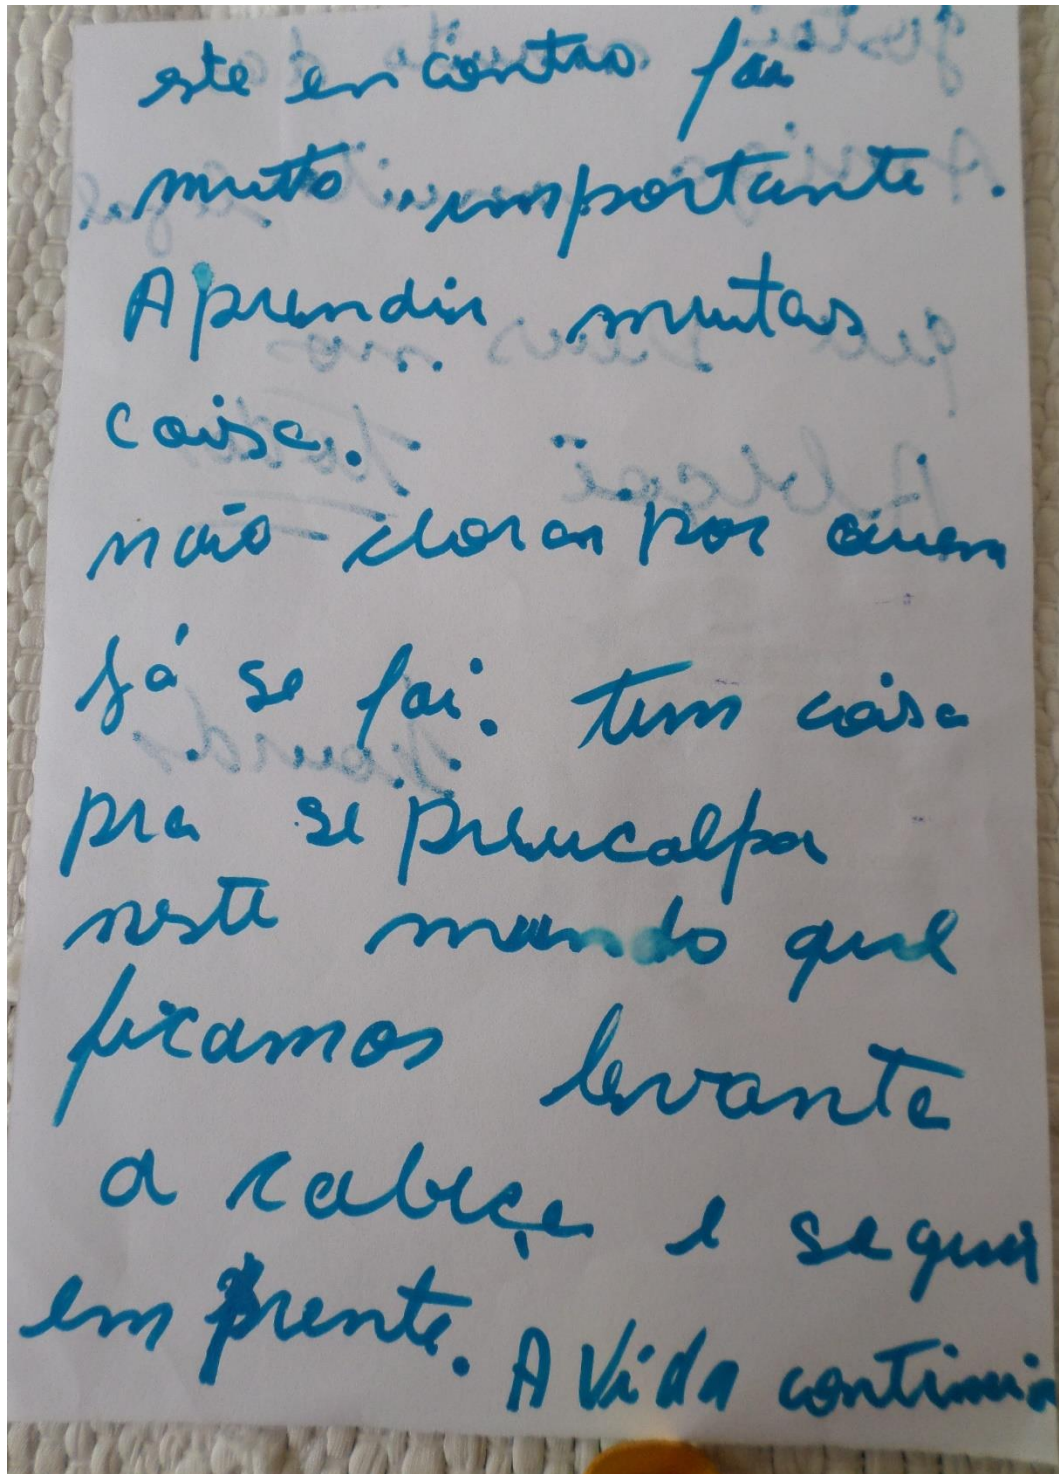 este encontro foi
muito importante.
Aprendir muitas
coisa.
não chorar por quem
já se foi. tem coisa
pra se preucalpa
neste mundo que
ficamos levante
a cabeça e seguir
em frente. A Vida continua